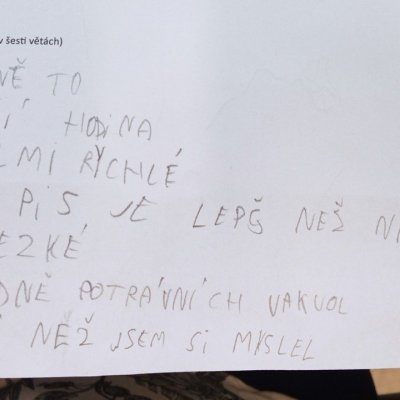 v šesti větách)
NĚ TO
Í HODINA
MI RYCHLÉ
PIS JE LEPŠ NEŽ N
EZKÉ
DNĚ POTRÁVNÍCH VAKUOL
NĚŽ JSEM SI MYSLEL